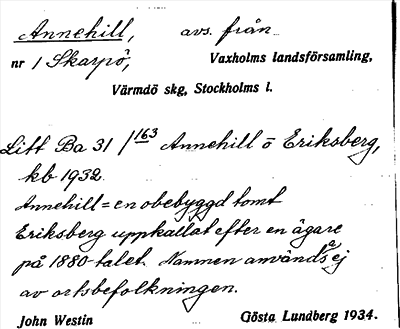 Annehill, avs. från
nr 1 Skarpö, Vaxholms landsförsamling,
Värmdö skg, Stockholms l.
Litt Ba 31/163 Annehill o Eriksberg,
kb 1932.
Annehill = en obebyggd tomt
Eriksberg uppkallat efter en ägare
på 1880-talet. Namnen används ej
av ortsbefolkningen.
John Westin Gösta Lundberg 1934.